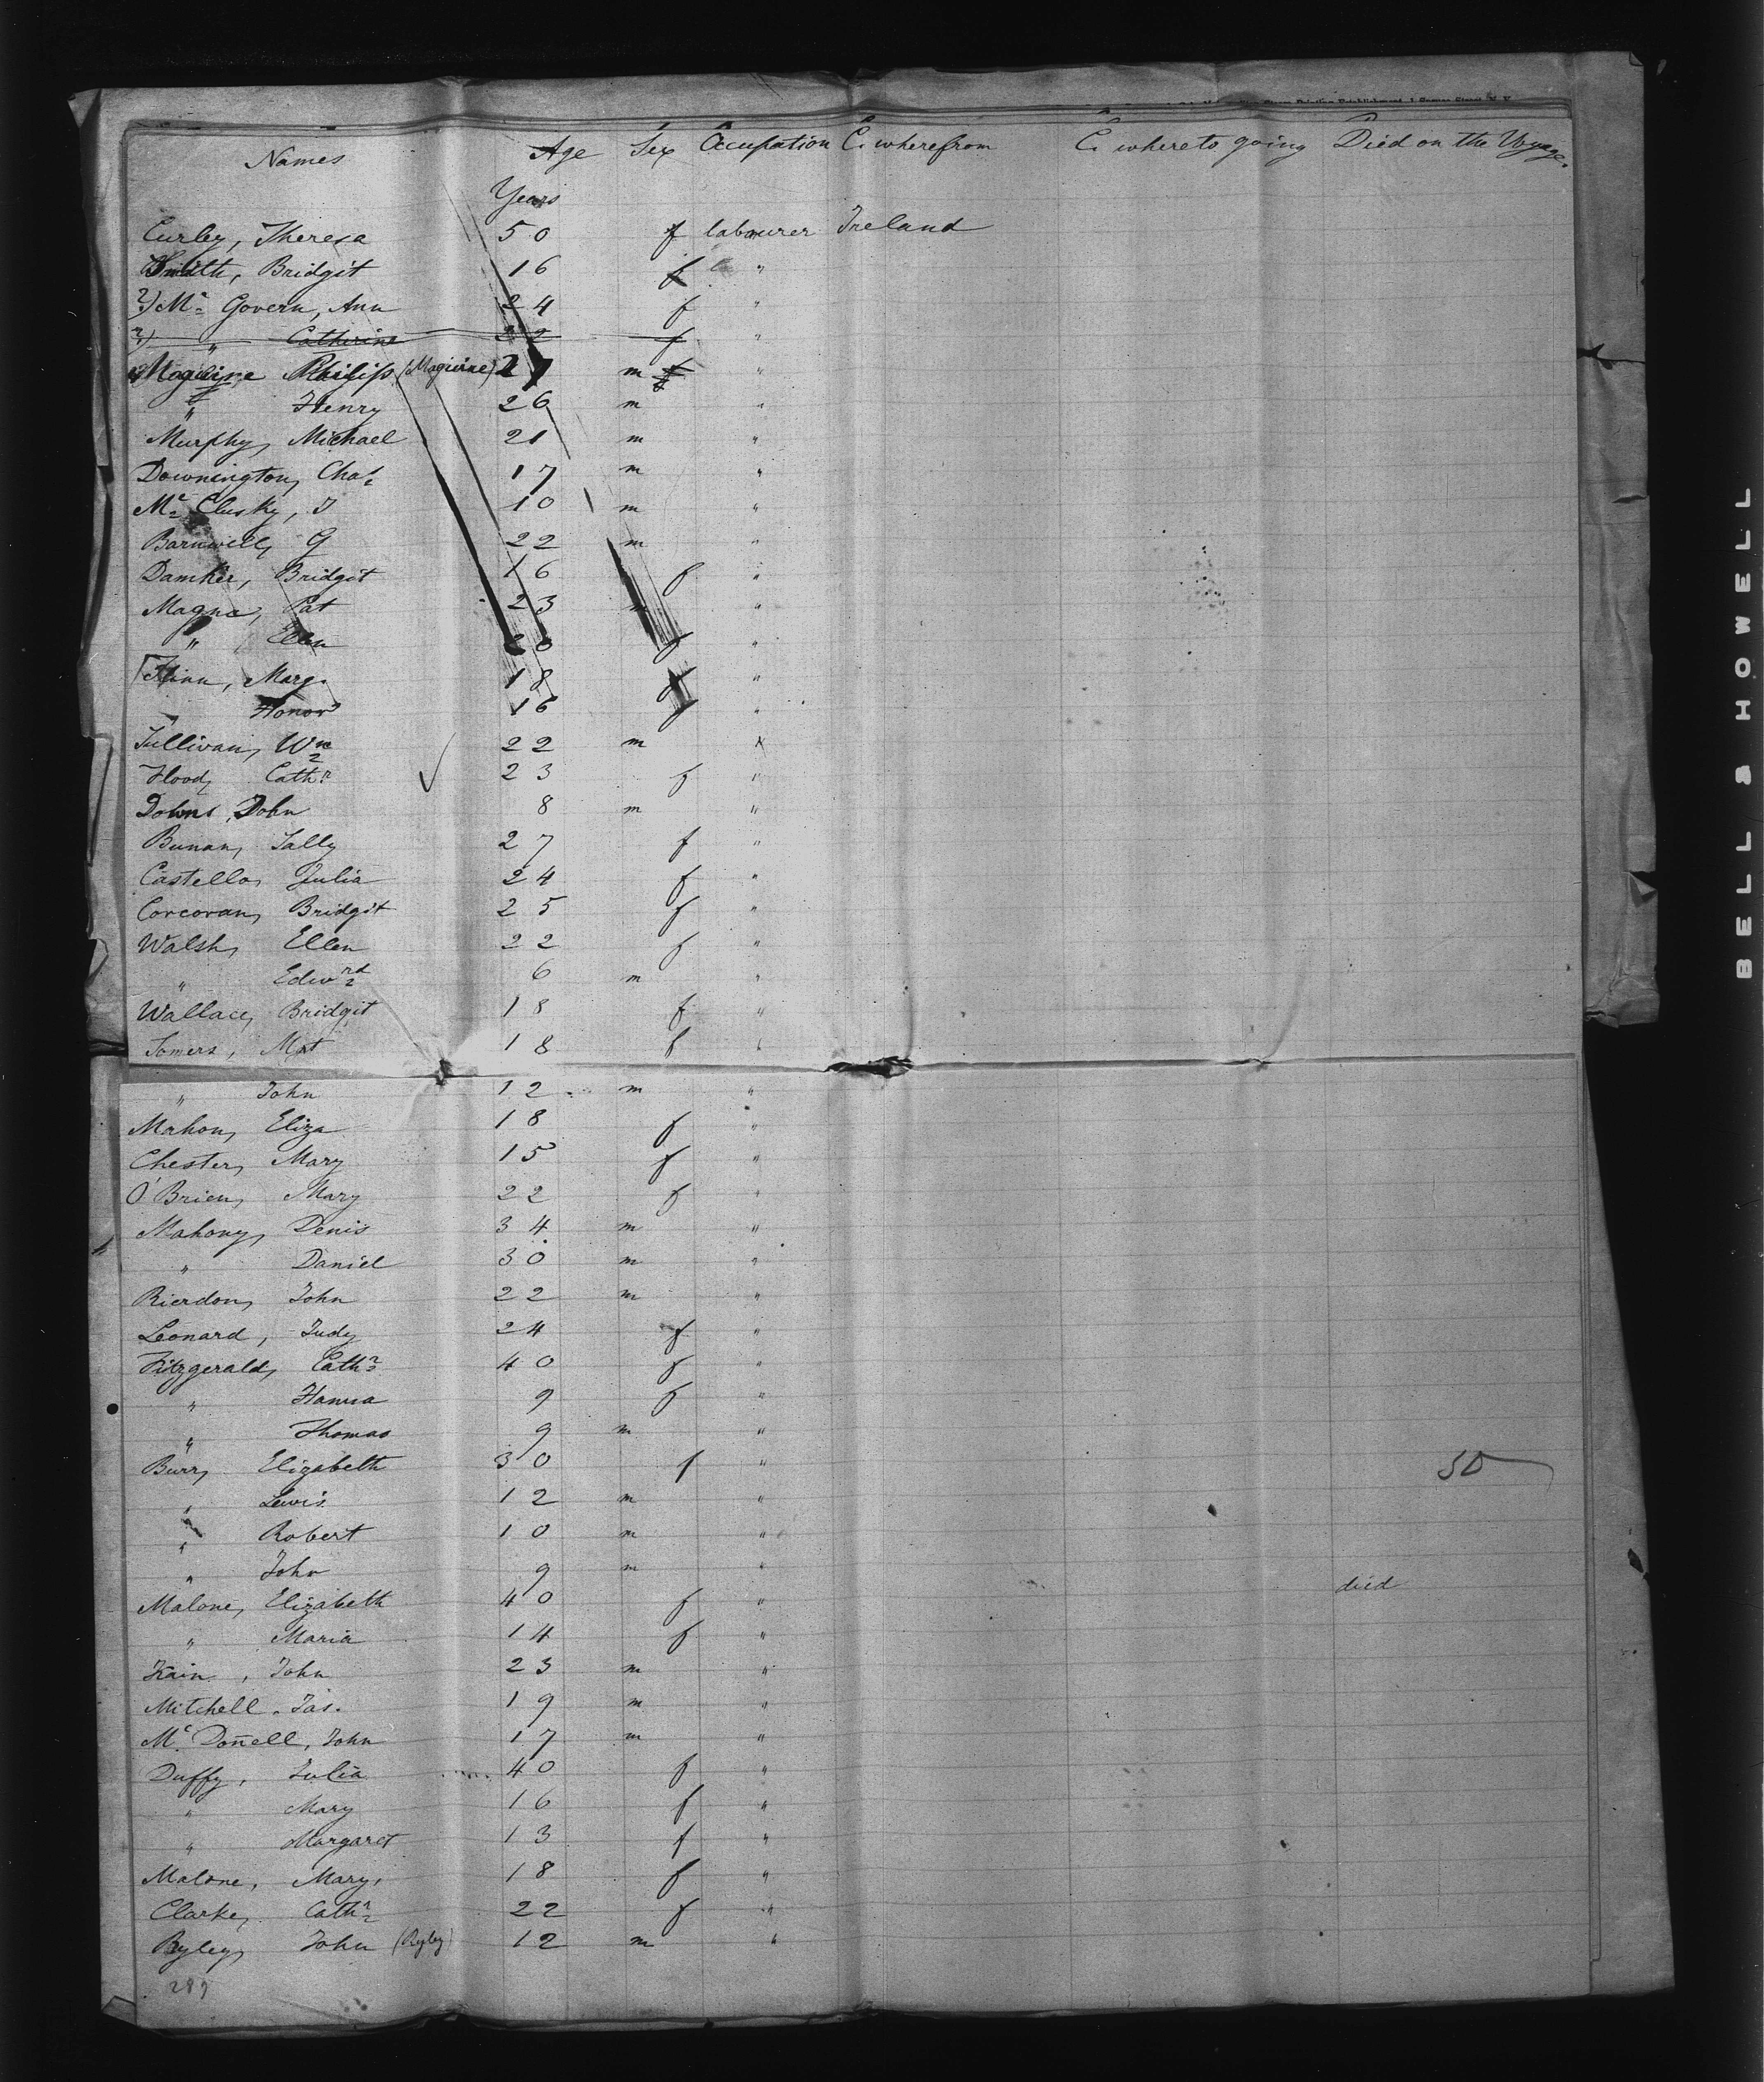 Names Age Sex Occupation C. wherefrom C. whereto going Died on the Voyage.
Years
Curley, Theresa 50 f labourer Ireland
Smith, Bridgit 16 f "
2) Mc Govern, Ann 24 f "
2) " Catherine 22 f "
Maguire Philip (Maguire) 27 m f "
" Henry 26 m "
Murphy, Michael 21 m "
Downington, Chas 17 m "
Mc Clusky, J 10 m "
Barnwell, G 22 m "
Damker, Bridgit 16 f "
Magna, Pat 23 m "
" Ellen 20 f "
Flinn, Marg. 18 f "
" Honor 16 f "
Sullivan, Wm 22 m "
Flood, Cathn 23 f "
Downs, John 8 m "
Bunan, Sally 27 f "
Castello, Julia 24 f "
Corcoran, Bridgit 25 f "
Walsh, Ellen 22 f "
" Edwrd 6 m "
Wallace, Bridgit 18 f "
Somers, Mat 18 f "
" John 12 m "
Mahon, Eliza 18 f "
Chester, Mary 15 f "
O'Brien, Mary 22 f "
Mahony, Denis 34 m "
" Daniel 30 m "
Rierdon, John 22 m "
Leonard, Judy 24 f "
Fitzgerald, Cathn 40 f "
" Hanna 9 f "
" Thomas 9 m "
Burr, Elizabeth 30 f "
" Lewis 12 m "
" Robert 10 m "
" John 9 m "
Malone, Elizabeth 40 f " died
" Maria 14 f "
Kain, John 23 m "
Mitchell, Jas. 19 m "
Mc Donnell, John 17 m "
Duffy, Julia 40 f "
" Mary 16 f "
" Margaret 13 f "
Malone, Mary, 18 f "
Clarke, Cathn 22 f "
Ryley, John (Ryley) 12 m "
289
BELL & HOWELL